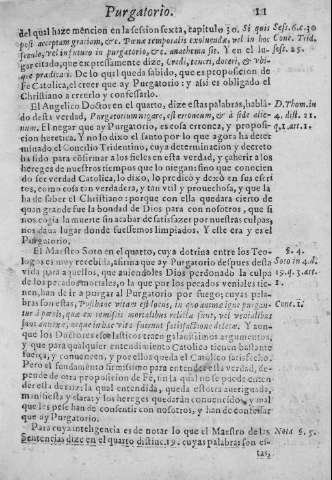 Purgatorio. 11
del qual haze mencion en la session sexta, capitulo 30. Si quis
post acceptam gratiam, &c. Pœnæ temporalis exoluendæ, vel in hoc
seculo, vel in futuro in purgatorio, &c. anathema sit. Y en el lu-
gar citado, que expressamente dize, Credi, teneri, doceri, & vbi-
que prædicari. De lo qual queda sabido, que es proposicion de
Fè Catolica, el creer que ay Purgatorio: y assi es obligado el
Christiano a creerlo y confessarlo.
El Angelico Doctor en el quarto, dize estas palabras, hablã-
do desta verdad, Purgatorium negare, est erroneum, & à fide alie-
num. El negar que ay Purgatorio, es cosa erronea, y proposi-
cion heretica. Y no lo dixo el santo por lo que agora ha deter-
minado el Concilio Tridentino, cuya determinacion y decreto
ha sido para confirmar a los fieles en esta verdad, y
hereges de nuestros tiempos que lo niegan: sino que conocien
do ser verdad Catolica, lo dixo, lo predicò y dexò en sus escri
tos, como cosa tan verdadera, y tan vtil y prouechosa, y que la
ha de saber el Christiano: porque con ella quedara cierto de
quan grande fue la bondad de Dios para con nosotros, que si
nos cogia la muerte sin acabar de satisfazer por nuestras culpas,
nos daua lugar donde fuessemos limpiados. Y este era y es el
Purgatorio.
El Maestro Soto en el quarto, cuya dotrina entre los Teo-
logos es muy recebida, afirma que ay Purgatorio despues desta
vida para aquellos, que auiendoles Dios perdonado la culpa
de los pecados mortales, o la que por los pecados veniales tie-
nen, han de ir a purgar al Purgatorio por fuego; cuyas pala-
bras son estas, Post hanc vitam est locus, in quo animæ igne purgan-
tur à pœnis, quæ ex remissis mortalibus relictæ sunt, vel venialibus
neque in hac vita fuerunt satisfactione deletæ. Y aun-
que los Doctores escolasticos traen galanissimos argumentos,
y que para qualquier entendimiento Catolico tienen bastante
fuerça, y conuencen, y por ellos queda el Catolico satisfecho.
Pero el fundamento firmissimo para entender esta verdad, de-
pende de otra proposicion de Fè, sin la qual no se puede enten-
der esta de raiz: la qual entendida, queda estotra aueriguada,
manifiesta y clara: y los hereges quedaràn conuencidos, y mal
que les pese han de consentir con nosotros, y han de confessar
que ay Purgatorio.
Para cuya inteligencia es de notar lo que el Maestro de las
Sentencias dize en el quarto distinc. 19. cuyas palabras son es-
tas,
Sess. 6. c. 30
Conc. Trid.
Sess. 25.
D. Thom. in
4. dist. 21.
q. 1. art. 1.
§. 4.
Soto in 4. d.
15. q. 3. art.
2.
Conc. 1.
Nota §. 5.